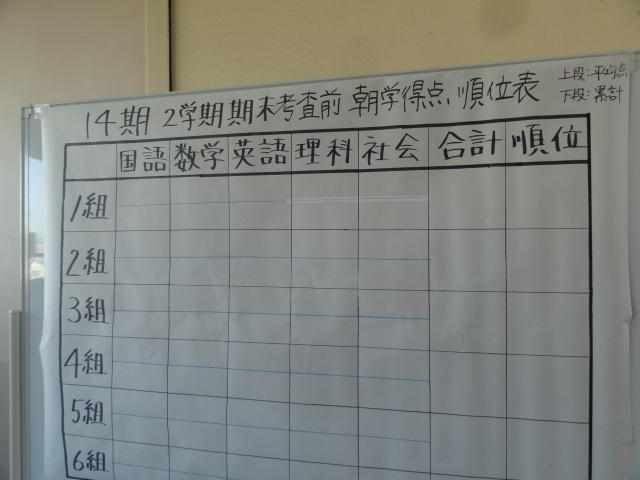 14期 2学期期末考査前 朝学得点、順位表
上段:平均点
下段:累計
国語 数学 英語 理科 社会 合計 順位
1組
2組
3組
4組
5組
6組